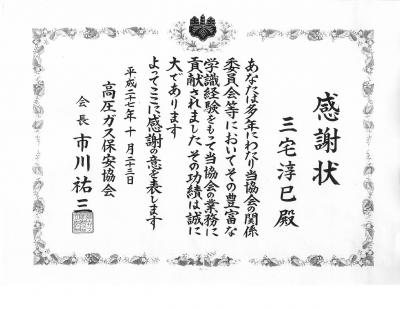 感謝状
三宅淳巳 殿
あなたは多年にわたり当協会の関係
委員会等においてその豊富な
学識経験をもって当協会の業務に
貢献されましたその功績は誠に
大であります
よってここに感謝の意を表します
平成二十七年 十月二十三日
高圧ガス保安協会
会長 市川祐三